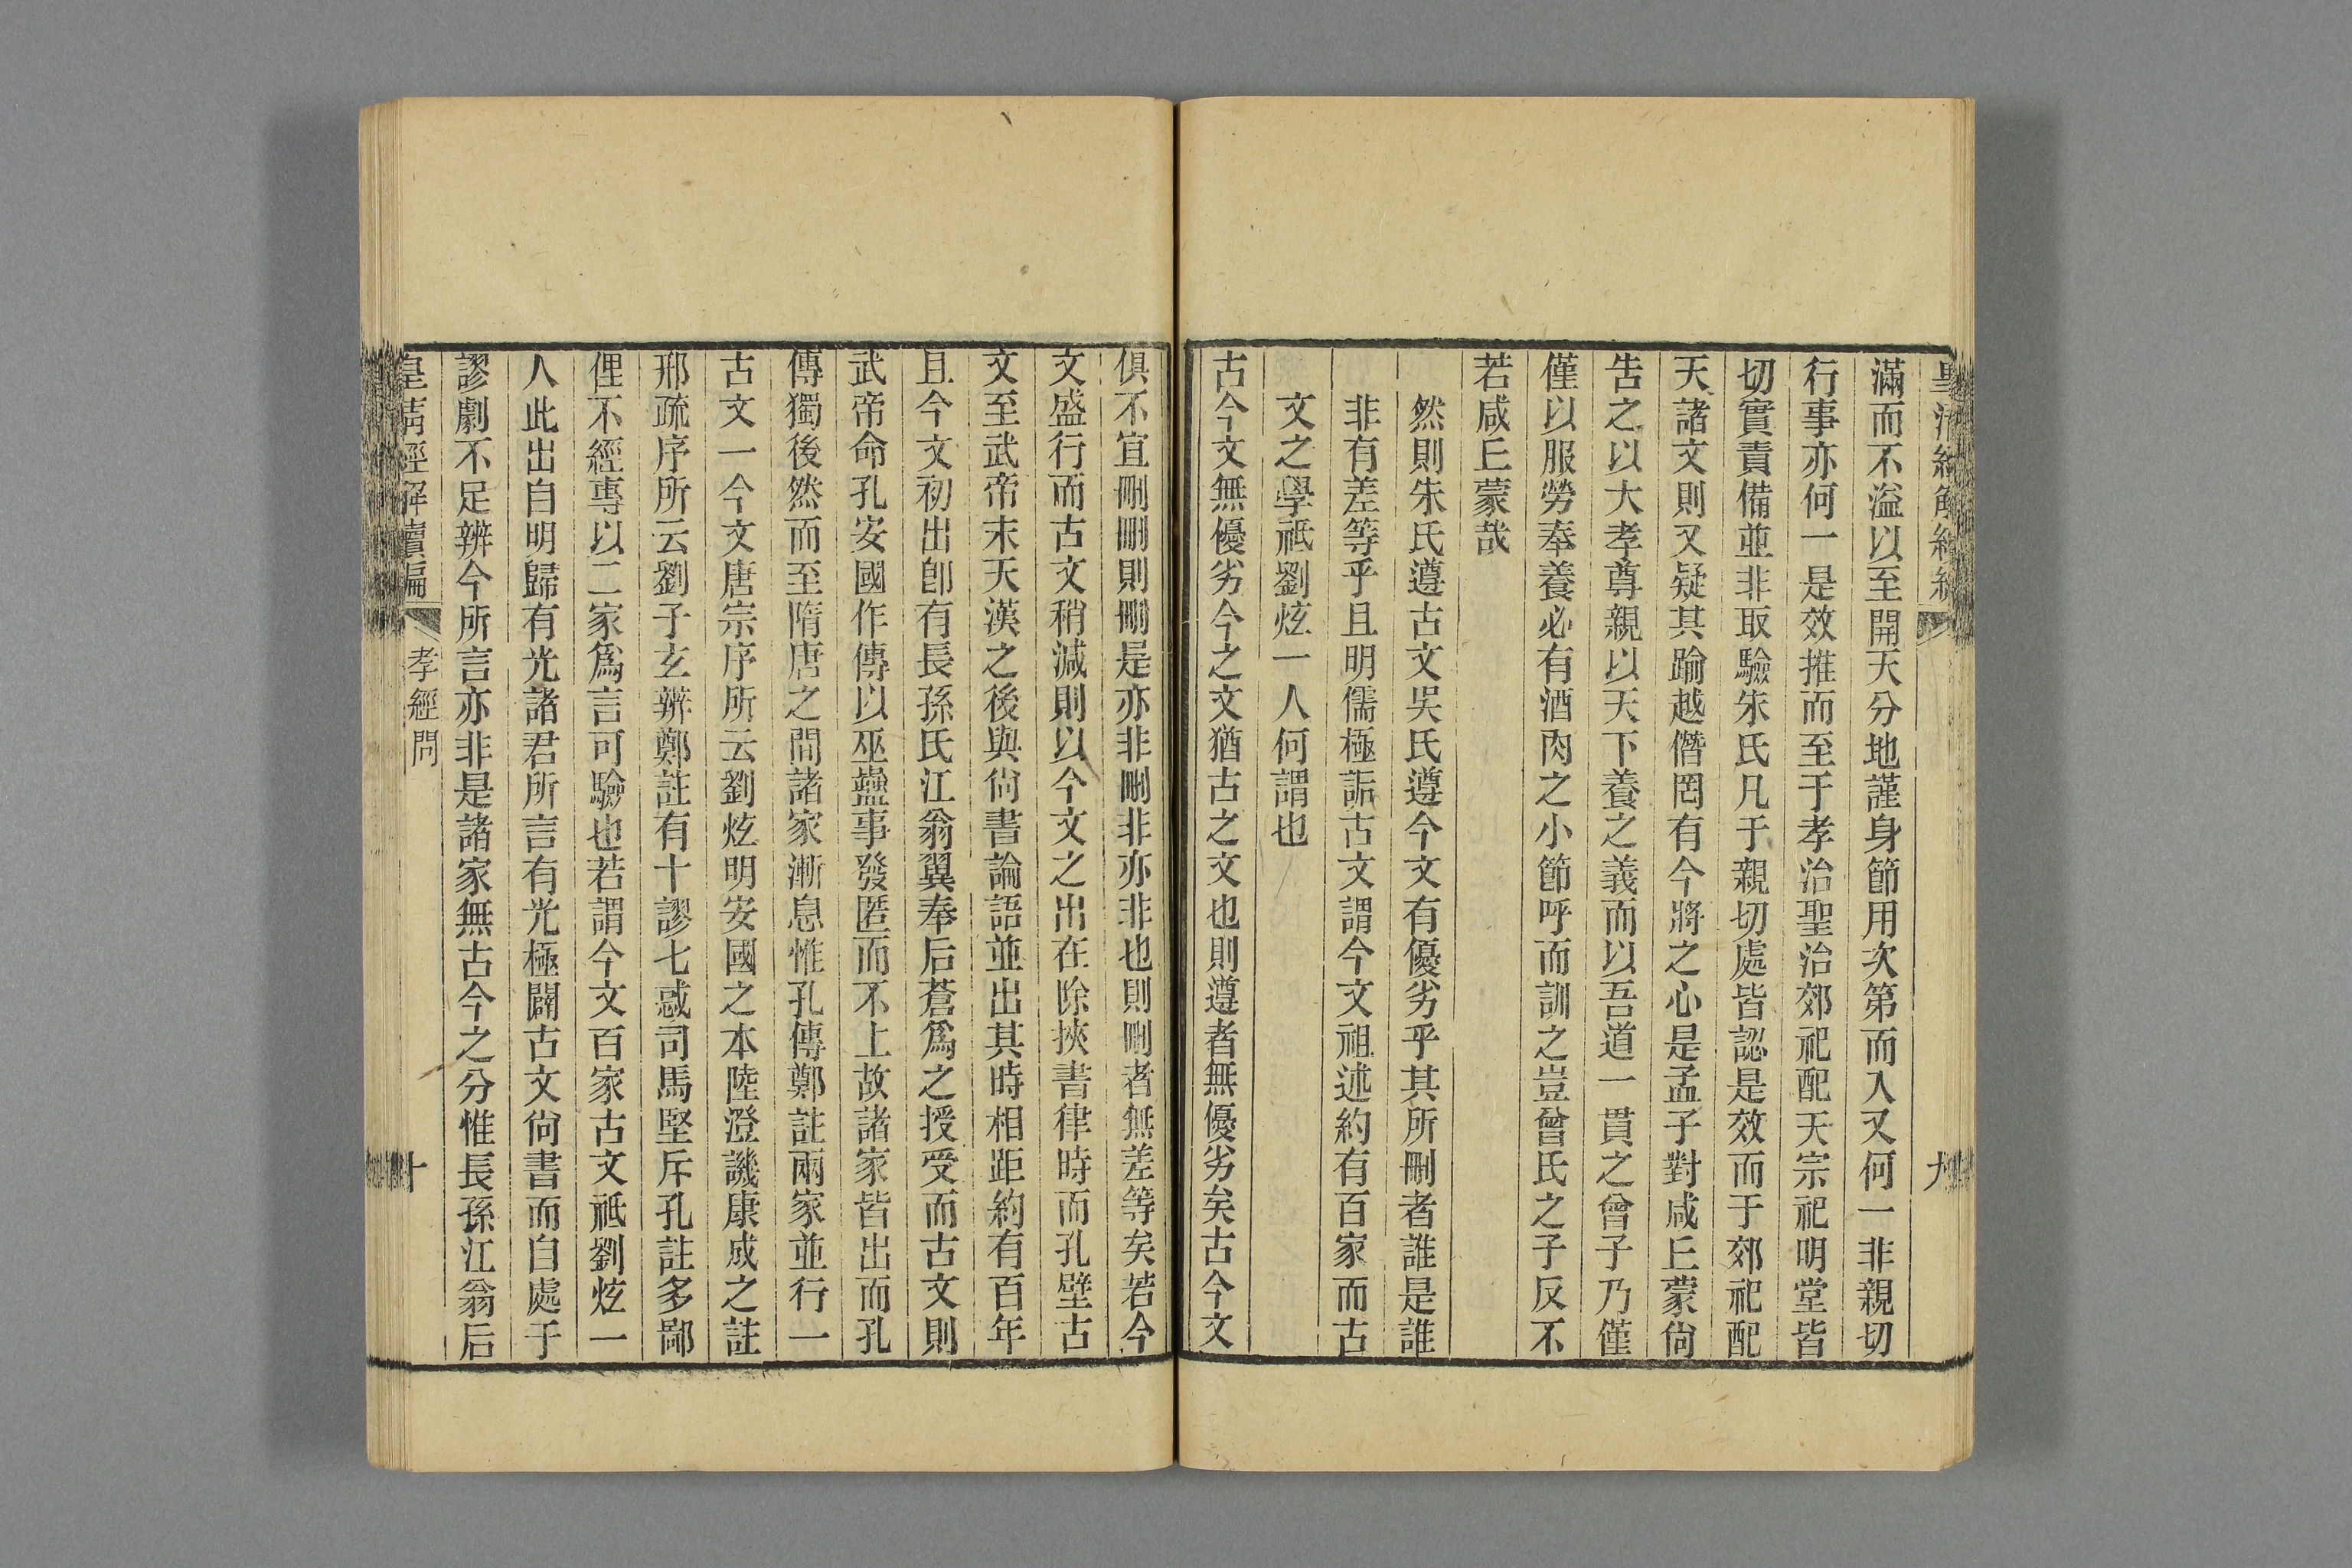 滿而不溢以至開天分地謹身節用次第而入又何一非親切
行事亦何一是效推而至于孝治聖治郊祀配天宗祀明堂皆
切實責備並非取驗朱氏凡于親切處皆認是效而于郊祀配
天諸文則又疑其踰越僭罔有今將之心是孟子對咸丘蒙尙
吿之以大孝尊親以天下養之義而以吾道一貫之曾子乃僅
僅以服勞奉養必有酒肉之小節呼而訓之豈曾氏之子反不
若咸丘蒙哉
然則朱氏遵古文吳氏遵今文有優劣乎其所刪者誰是誰
非有差等乎且明儒極詬古文謂今文祖述約有百家而古
文之學祗劉炫一人何謂也
古今文無優劣今之文猶古之文也則遵者無優劣矣古今文
俱不宜刪刪則刪是亦非刪非亦非也則刪者無差等矣若今
文盛行而古文稍減則以今文之出在除挾書律時而孔壁古
文至武帝末天漢之後與尙書論語並出其時相距約有百年
且今文初出卽有長孫氏江翁翼奉后蒼爲之授受而古文則
武帝命孔安國作傳以巫蠱事發匿而不上故諸家皆出而孔
傳獨後然而至隋唐之間諸家漸息惟孔傳鄭註兩家並行一
古文一今文唐宗序所云劉炫明安國之本陸澄譏康成之註
邢疏序所云劉子玄辨鄭註有十謬七惑司馬堅斥孔註多鄙
俚不經專以二家爲言可驗也若謂今文百家古文祗劉炫一
人此出自明歸有光諸君所言有光極闢古文尙書而自處于
謬劇不足辨今所言亦非是諸家無古今之分惟長孫江翁后
皇淸經解續編 孝經問 十